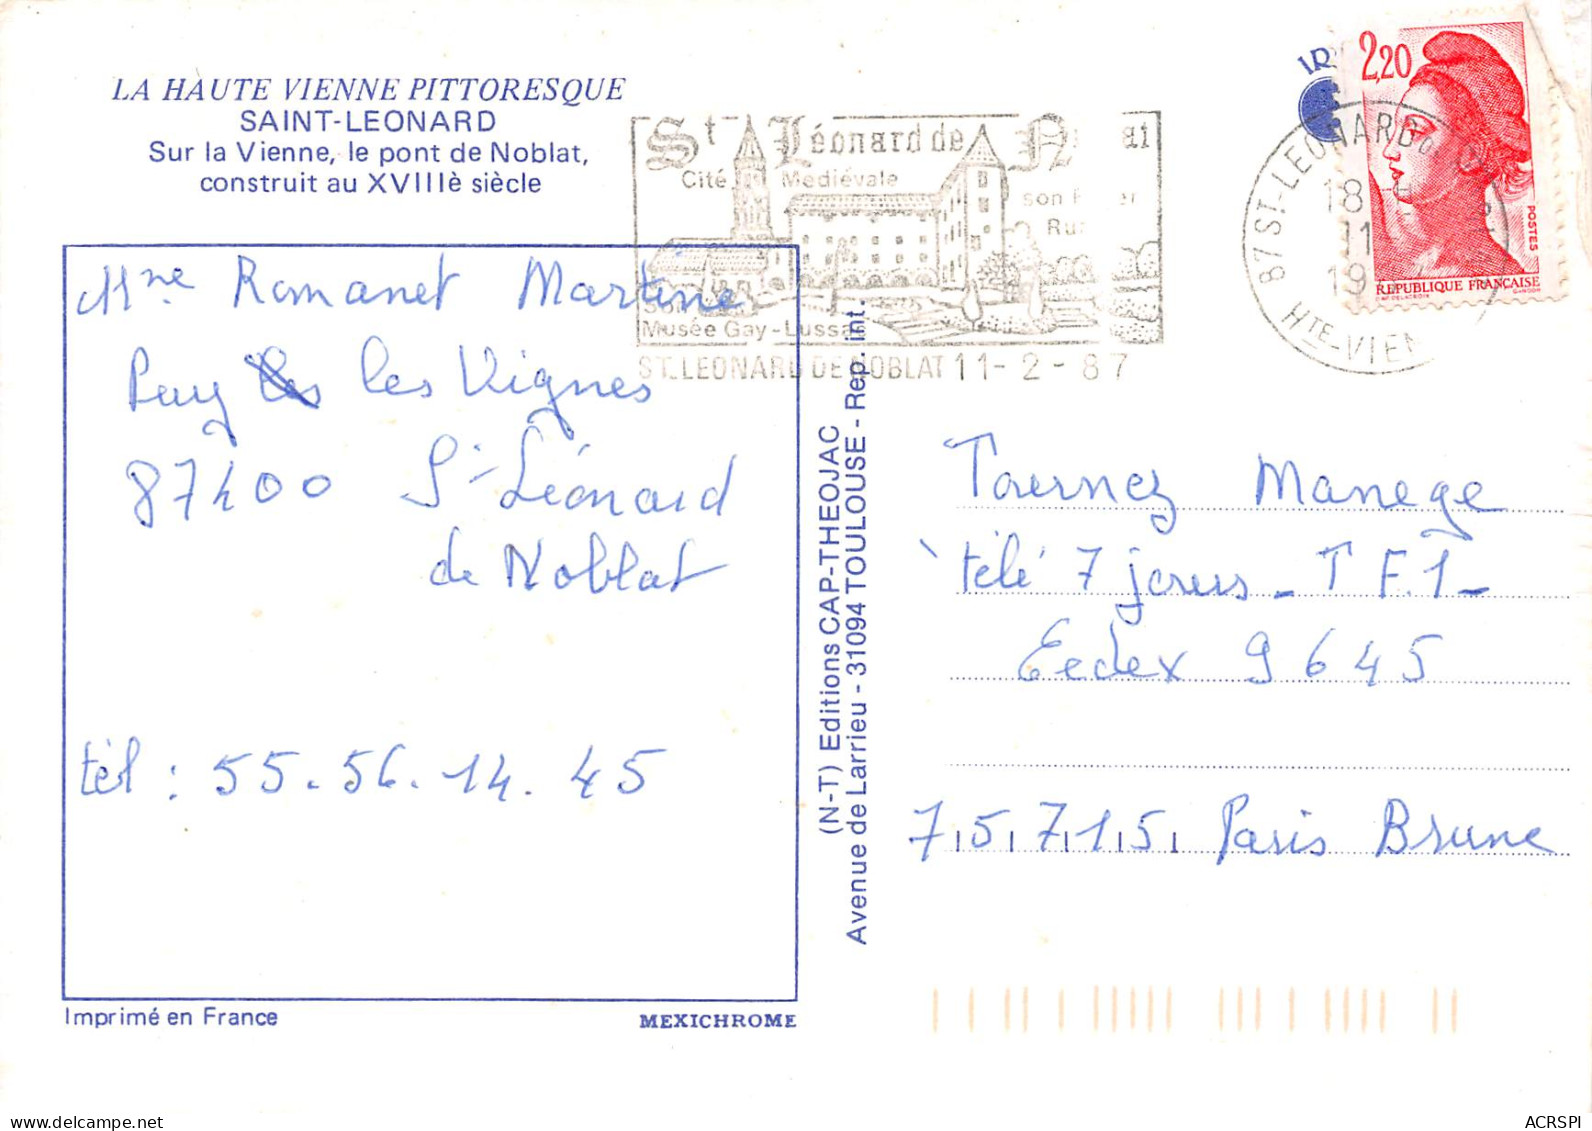 LA HAUTE VIENNE PITTORESQUE
SAINT-LEONARD
Sur la Vienne, le pont de Noblat,
construit au XVIIIè siècle
St Léonard de
Cité Mediévale
son
Son
Musée Gay-Lussac
ST.LEONARD DE NOBLAT 11-2-87
87 ST-LEONARD
18
11
19
HTE-VIEN
2,20
POSTES
REPUBLIQUE FRANÇAISE
Mme Romanet Martine
Puy les Vignes
87400 St Léonard
de Noblat
tèl : 55.56.14.45
Imprimé en France
MEXICHROME
(N-T) Editions CAP-THEOJAC
Avenue de Larrieu - 31094 TOULOUSE - Rep. int.
Tournez Manege
télé 7 jours - T F.1 -
Cedex 9645
75715 Paris Brune
ACRSPI